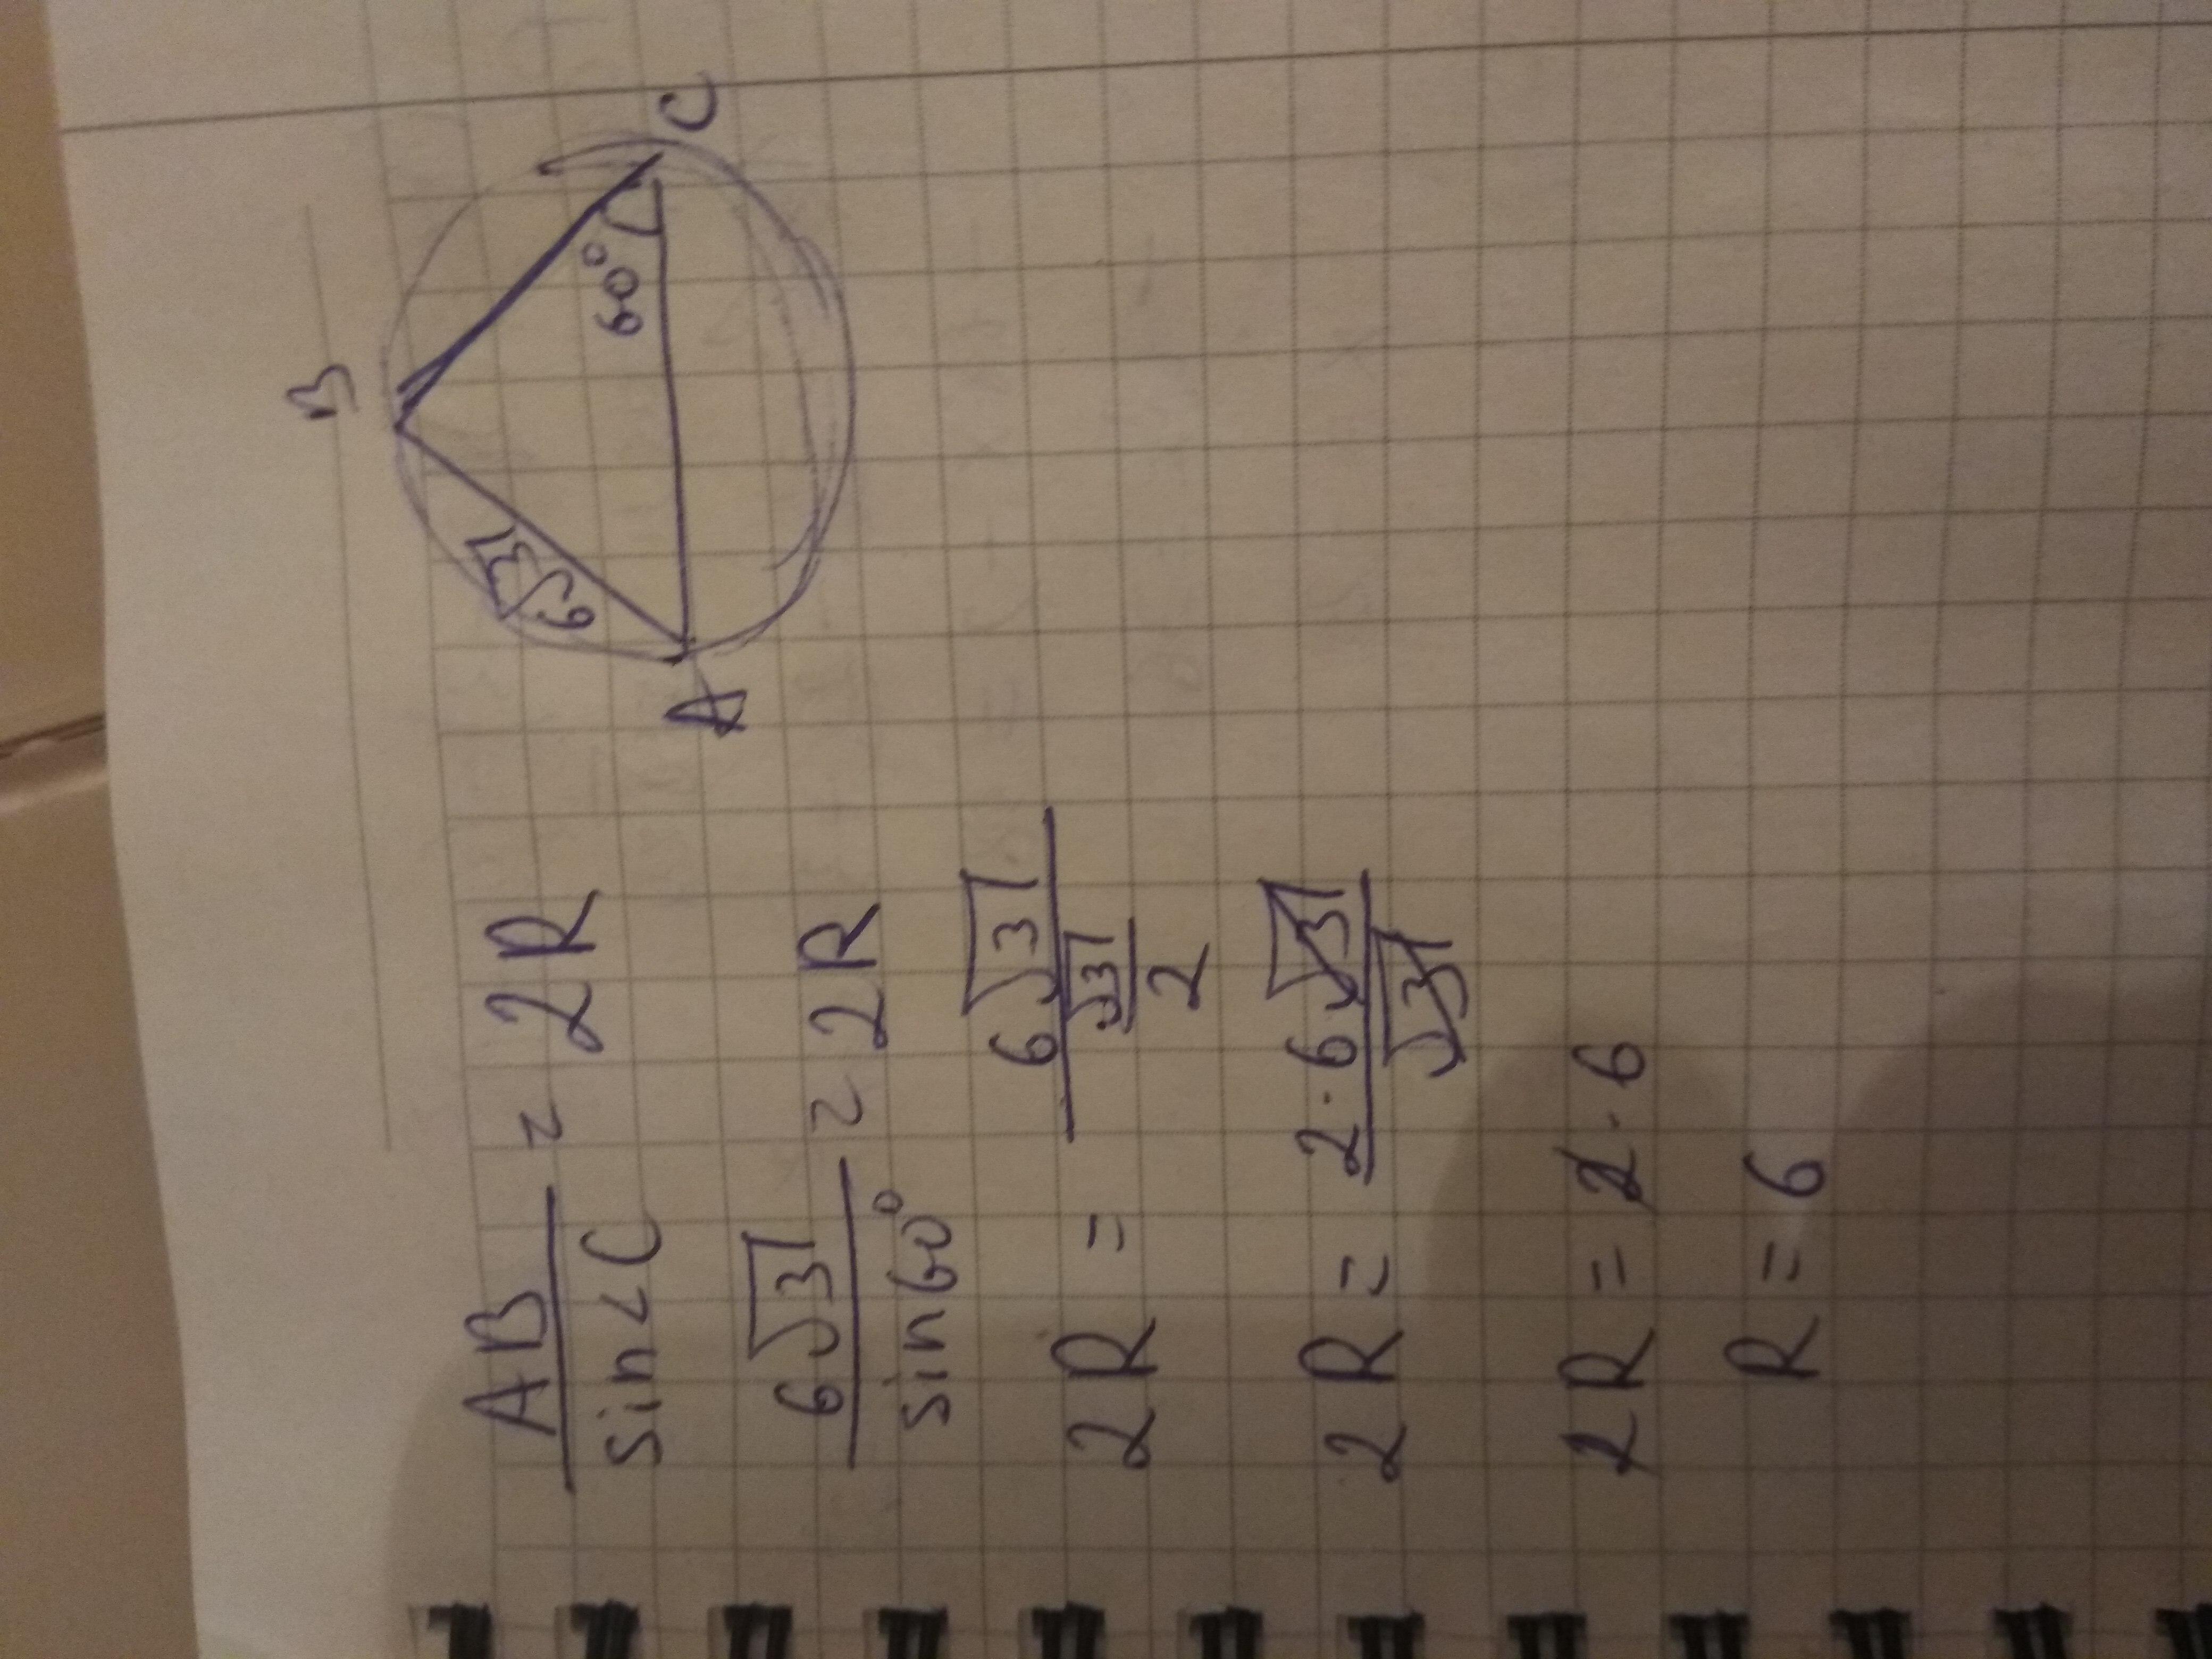 B
6√3
60°
A
C
AB/sin∠C = 2R
6√3/sin60° = 2R
2R = 6√3/(√3/2)
2R = 2·6√3/√3
2R = 2·6
R = 6